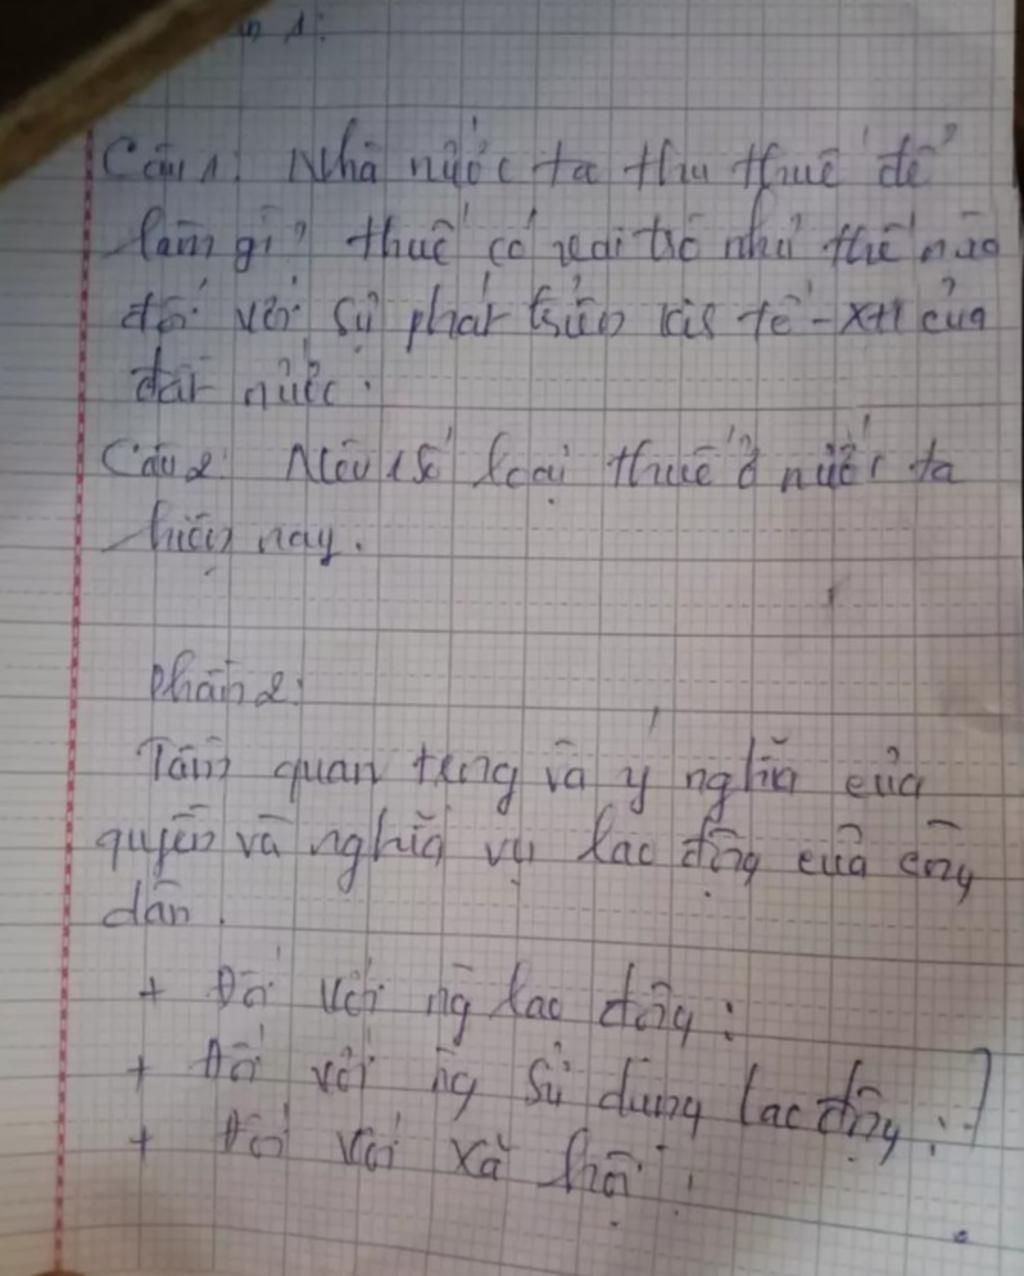 Câu 1: Nhà nước ta thu thuế để
làm gì? thuế có vai trò như thế nào
đối với sự phát triển kis tế - XH của
đất nước.
Câu 2: Nêu 1 số loại thuế ở nước ta
hiện nay.
Phần 2:
Tầm quan trọng và ý nghĩa của
quyền và nghĩa vụ lao động của công
dân.
+ Đối với ng lao động:
+ Đối với ng sử dụng lao động:
+ Đối với xã hội: